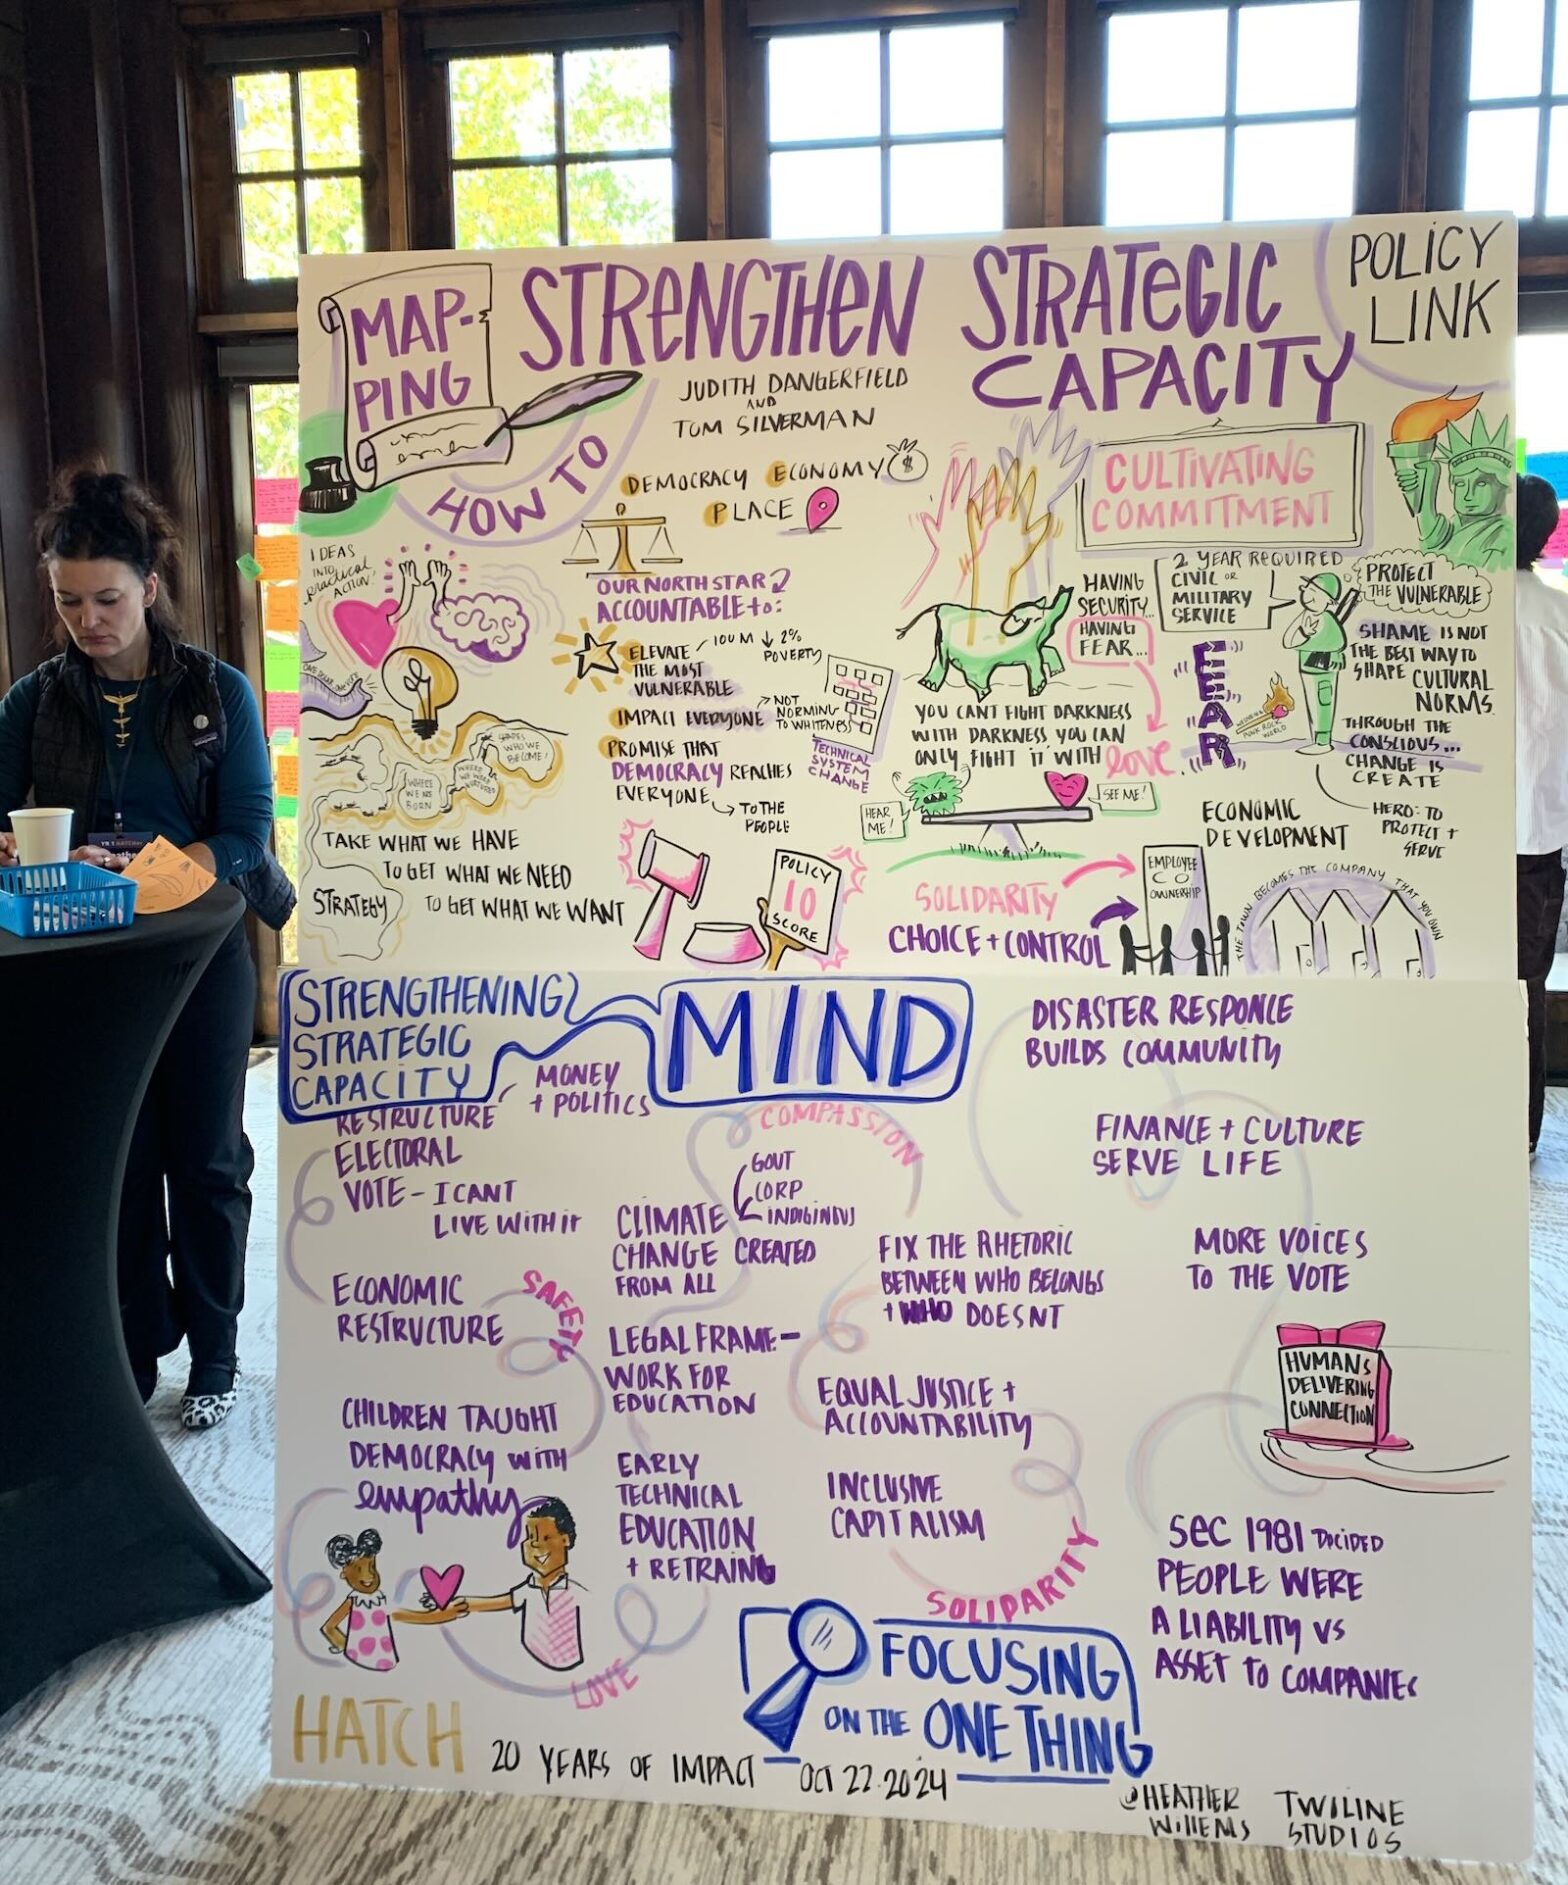 MAP-
PING
HOW TO
STRENGTHEN STRATEGIC
CAPACITY
POLICY
LINK
JUDITH DANGERFIELD
AND
TOM SILVERMAN
DEMOCRACY ECONOMY $
PLACE
IDEAS
INTO
practical
ACTION!
OUR NORTH STAR
ACCOUNTABLE to:
ELEVATE
THE MOST
VULNERABLE
100 M ↓ 2%
POVERTY
IMPACT EVERYONE
NOT
NORMING
TO WHITENESS
TECHNICAL
SYSTEM
CHANGE
PROMISE THAT
DEMOCRACY REACHES
EVERYONE
TO THE
PEOPLE
WHERE
WE ARE
BORN
WHERE
WE WERE
NURTURED
SHAPES
WHO WE
BECOME!
TAKE WHAT WE HAVE
TO GET WHAT WE NEED
TO GET WHAT WE WANT
STRATEGY
POLICY
10
SCORE
CULTIVATING
COMMITMENT
HAVING
SECURITY...
HAVING
FEAR...
2 YEAR REQUIRED
CIVIL OR
MILITARY
SERVICE
PROTECT
THE VULNERABLE
FEAR
PUNK ROCK
WORLD
SHAME IS NOT
THE BEST WAY TO
SHAPE CULTURAL
NORMS.
THROUGH THE
CONSCIOUS...
CHANGE IS
CREATE
HERO: TO
PROTECT +
SERVE
YOU CANT FIGHT DARKNESS
WITH DARKNESS YOU CAN
ONLY FIGHT IT WITH love.
HEAR
ME!
SEE ME!
ECONOMIC
DEVELOPMENT
SOLIDARITY
CHOICE + CONTROL
EMPLOYEE
CO
OWNERSHIP
THE TOWN BECOMES THE COMPANY THAT YOU OWN
STRENGTHENING
STRATEGIC
CAPACITY
MIND
MONEY
+ POLITICS
RESTRUCTURE
ELECTORAL
VOTE - I CANT
LIVE WITH IT
ECONOMIC
RESTRUCTURE
SAFETY
CHILDREN TAUGHT
DEMOCRACY WITH
empathy
LOVE
COMPASSION
GOVT
CORP
INDIGINOUS
CLIMATE
CHANGE CREATED
FROM ALL
LEGAL FRAME-
WORK FOR
EDUCATION
EARLY
TECHNICAL
EDUCATION
+ RETRAING
FIX THE RHETORIC
BETWEEN WHO BELONGS
+ WHO DOESNT
EQUAL JUSTICE +
ACCOUNTABILITY
INCLUSIVE
CAPITALISM
SOLIDARITY
DISASTER RESPONCE
BUILDS COMMUNITY
FINANCE + CULTURE
SERVE LIFE
MORE VOICES
TO THE VOTE
HUMANS
DELIVERING
CONNECTION
SEC 1981 DICIDED
PEOPLE WERE
A LIABILITY VS
ASSET TO COMPANIES
FOCUSING
ON THE ONE THING
HATCH
20 YEARS OF IMPACT - OCT 22.2024
@HEATHER
WILLEMS
TWILINE
STUDIOS